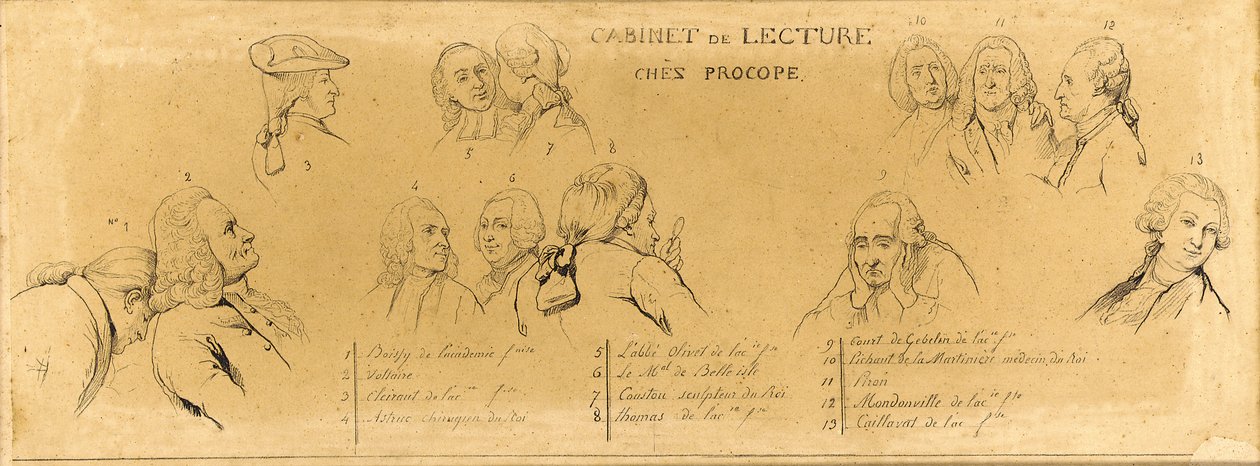 CABINET DE LECTURE
CHÈS PROCOPE.
10
11
12
3
5
7
8
2
4
6
9
13
N° 1
1 Boissy de l'académie f.aise
2 Voltaire
3 Cleiraut de l'ac.ie f.se
4 Astruc chirugien du Roi
5 L'abbé Olivet de l'ac.ie f.se
6 Le M.al de Belle isle
7 Coustou sculpteur du Roi
8 thomas de l'ac.ie f.se
9 Court de Gebelin de l'ac.ie f.se
10 Pichaut de la Martinière médecin du Roi
11 Piron
12 Mondonville de l'ac.ie f.se
13 Caillavat de l'ac f.se